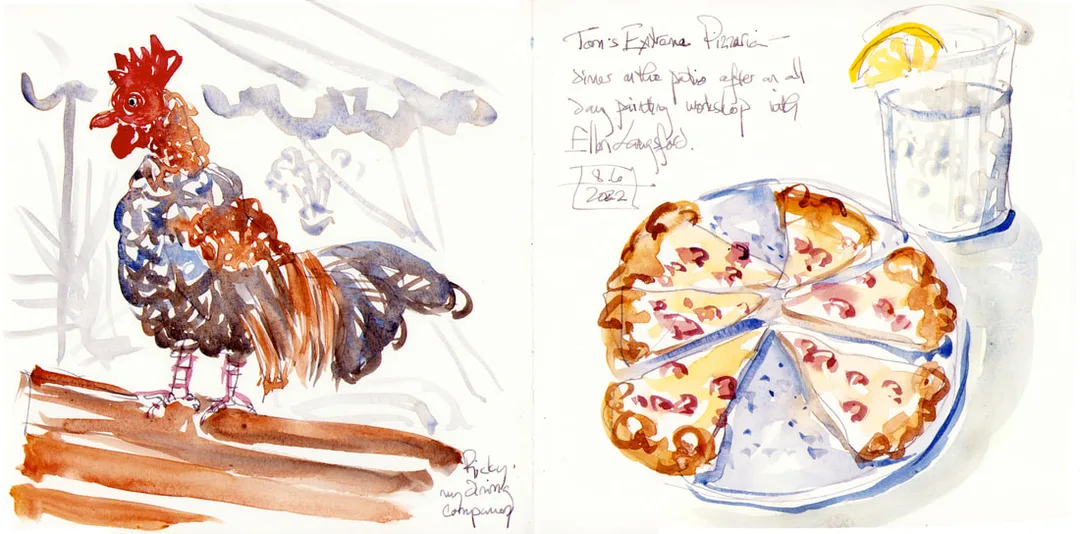 Ricky.
my dining
companion
Tom's Extreme Pizzaria —
dinner on the patio after an all
day painting workshop with
Ellen Langford.
8.6
2022